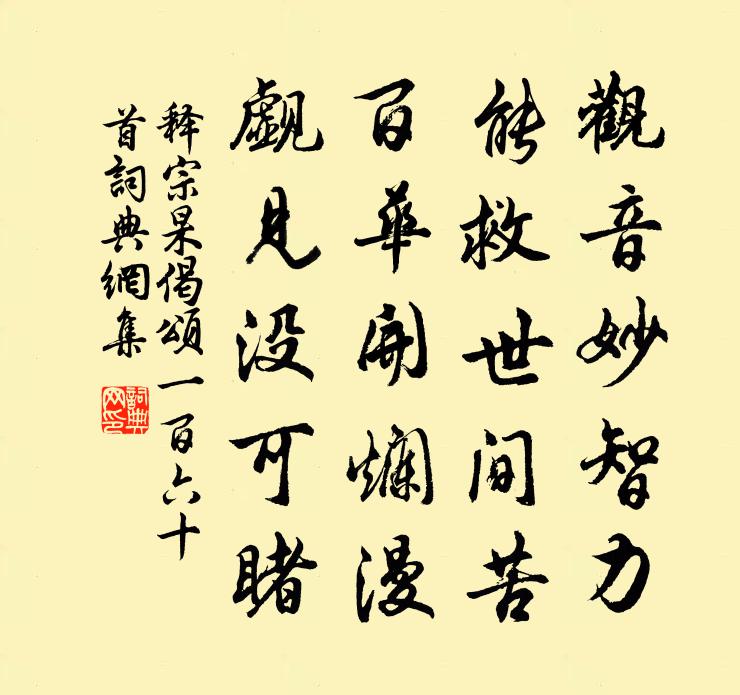 觀音妙智力
能救世間苦
百華開爛漫
覷見没可睹
释宗杲偈頌一百六十
首詞典網集
詞典
网印